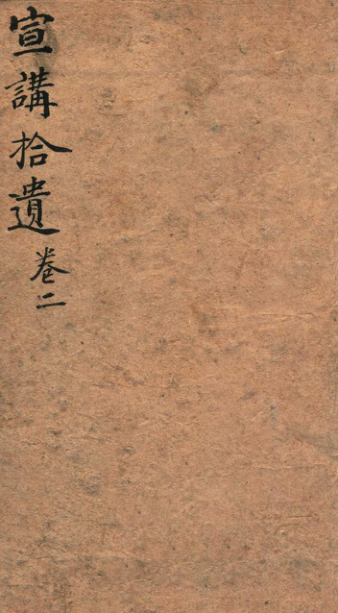 宣講拾遺
卷二